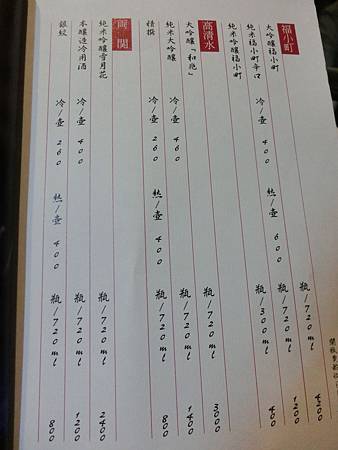 福小町
大吟醸福小町 瓶/720ml 4200
純米福小町辛口 冷/壺 400 熱/壺 600 瓶/720ml 1200
純米吟醸福小町 瓶/300ml 400
高清水
大吟醸「和兆」 瓶/720ml 3000
純米大吟醸 冷/壺 460 瓶/720ml 1400
精撰 冷/壺 260 熱/壺 400 瓶/720ml 800
両関
純米吟醸雪月花 瓶/720ml 2400
本醸造冷用酒 冷/壺 400 瓶/720ml 1200
銀紋 冷/壺 260 熱/壺 400 瓶/720ml 800